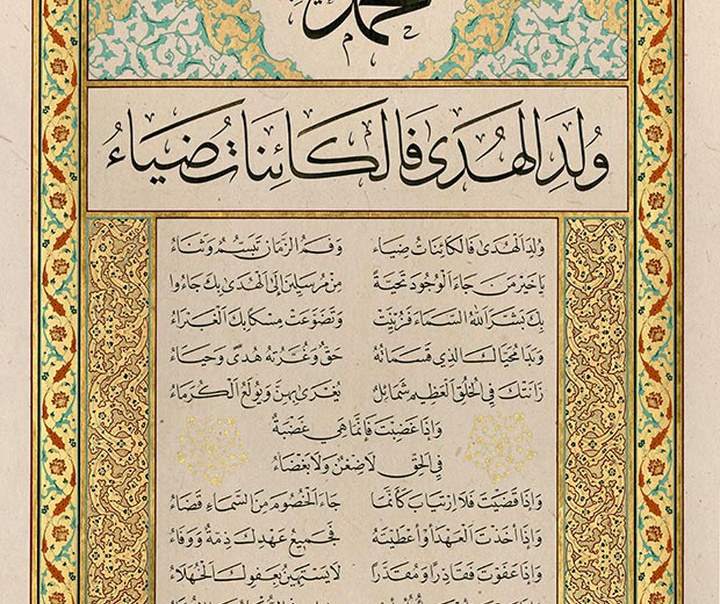 محمد
وُلِدَ الهُدَىٰ فَالكَائِنَاتُ ضِيَاءُ
وُلِدَ الهُدَىٰ فَالكَائِنَاتُ ضِيَاءُ وَفَمُ الزَّمَانِ تَبَسُّمٌ وَثَنَاءُ
يَا خَيْرَ مَنْ جَاءَ الوُجُودَ تَحِيَّةً مِنْ مُرْسَلِينَ إِلَى الهُدَىٰ بِكَ جَاءُوا
بِكَ بَشَّرَ اللهُ السَّمَاءَ فَزُيِّنَتْ وَتَضَوَّعَتْ مِسْكًا بِكَ الغَبْرَاءُ
وَبَدَا مُحَيَّاكَ الَّذِي قَسَمَاتُهُ حَقٌّ وَغُرَّتُهُ هُدًى وَحَيَاءُ
زَانَتْكَ فِي الخُلُقِ العَظِيمِ شَمَائِلٌ يُغْرَىٰ بِهِنَّ وَيُولَعُ الكُرَمَاءُ
وَإِذَا غَضِبْتَ فَإِنَّمَا هِيَ غَضْبَةٌ
فِي الحَقِّ لَا ضِغْنٌ وَلَا بَغْضَاءُ
وَإِذَا قَضَيْتَ فَلَا ارْتِيَابَ كَأَنَّمَا جَاءَ الخُصُومَ مِنَ السَّمَاءِ قَضَاءُ
وَإِذَا أَخَذْتَ العَهْدَ أَوْ أَعْطَيْتَهُ فَجَمِيعُ عَهْدِكَ ذِمَّةٌ وَوَفَاءُ
وَإِذَا عَفَوْتَ فَقَادِرًا وَمُقَدَّرًا لَا يَسْتَهِينُ بِعَفْوِكَ الجُهَلَاءُ